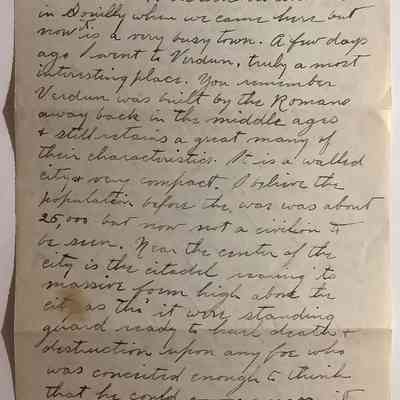 in Souilly when we came here but
now it is a very busy town. A few days
ago I went to Verdun, truly a most
interesting place. You remember
Verdun was built by the Romans
away back in the middle ages
& still retains a great many of
their characteristics. It is a walled
city & very compact. I believe the
population before the war was about
25,000 but now not a civilian to
be seen. Near the center of the
city is the citadel rearing its
massive form high above the
city as tho' it were standing
guard ready to hurl death &
destruction upon any foe who
was conceited enough to think
that he could